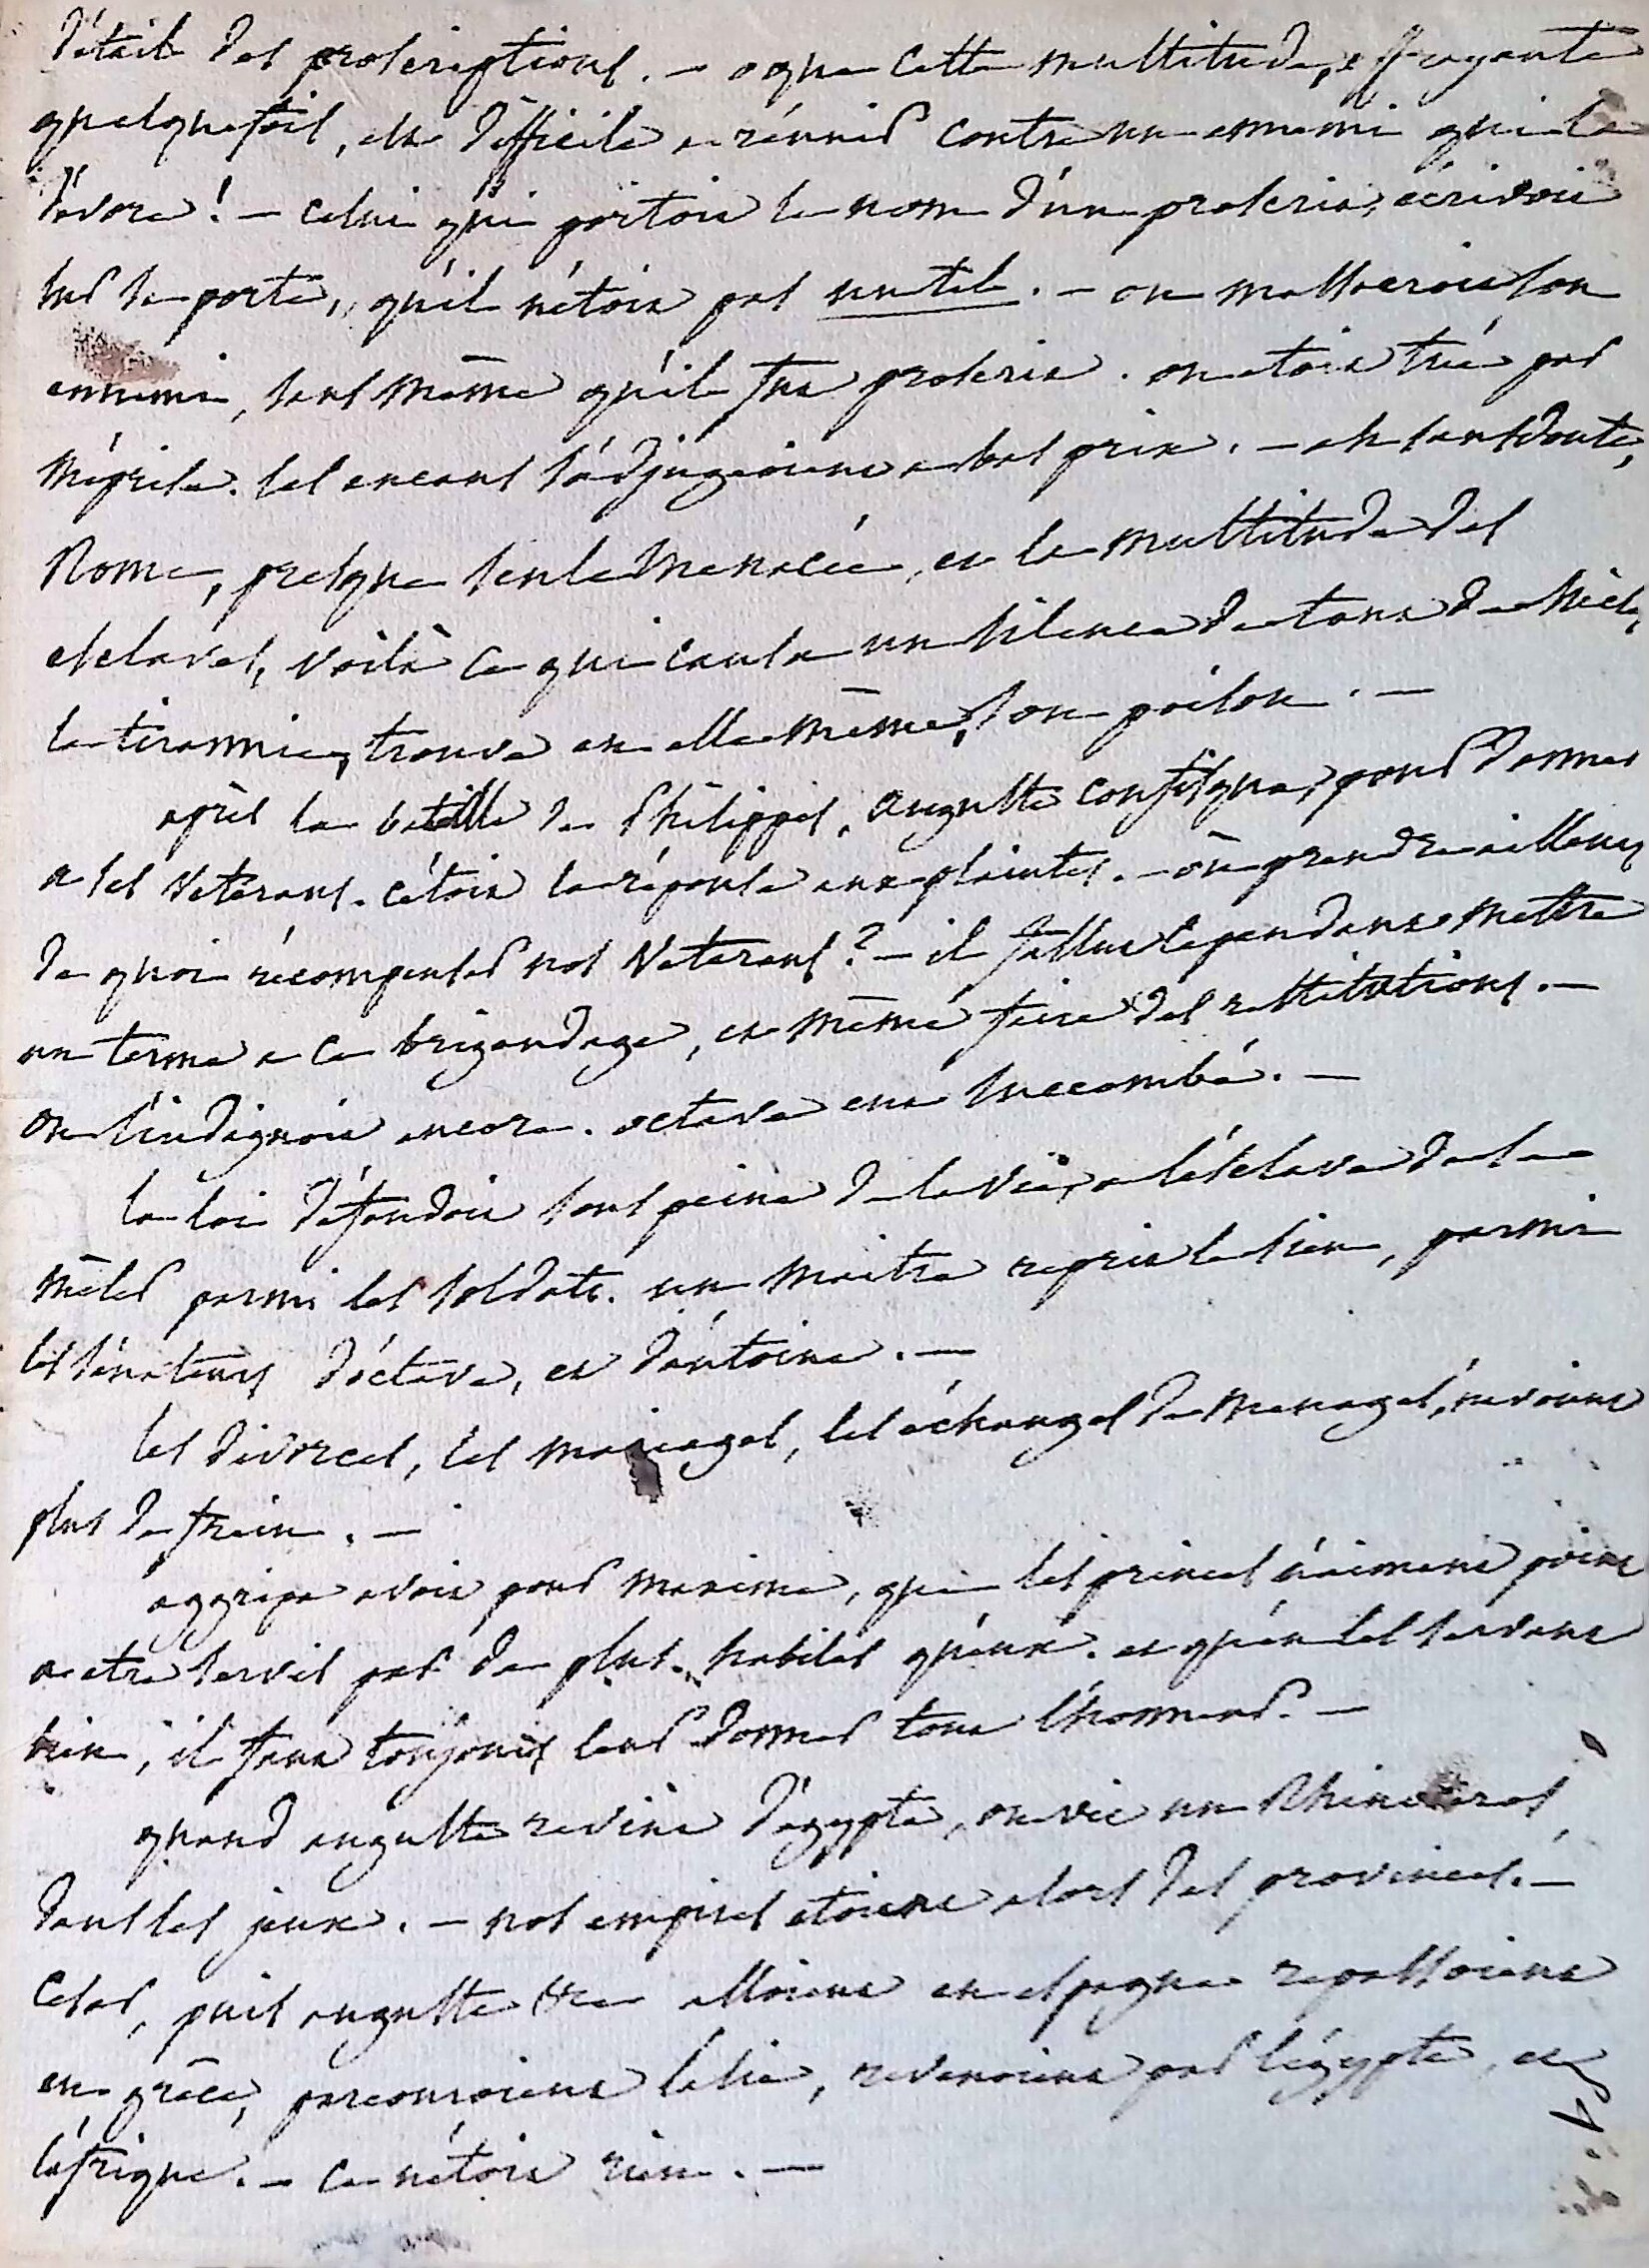 détail des proscriptions. — o que cette multitude, effrayante
quelquefois, est difficile a réunir contre un ennemi qui la
dévore ! — celui qui portoit le nom d'un proscrit, écrivoit
sur sa porte, qu'il n'étoit pas un tel. — on massacroit son
ennemi, sans même qu'il fut proscrit. on etoit tué par
méprise. les encans s'adjugeoient a bas prix. — eh sans doute,
Rome, presque seule menacée, et la multitude des
esclaves, voilà ce qui causa un silence de tant de siècles,
la tirannie, trouve en elle même, son poison. —
après la bataille de Philippes, auguste confisqua, pour donner
a ses Veterans. c'étoit la réponse aux plaintes. — où prendre ailleurs
de quoi récompenser nos Veterans ? — il fallut cependant mettre
un terme a ce brigandage, et même faire des restitutions. —
on s'indignoit encore. octave eut succombé. —
la loi défendoit sous peine de la vie, a l'esclave de se
mêler parmi les soldats. un maitre reprit le sien, parmi
les sénateurs d'octave, et d'antoine. —
les divorces, les mariages, les échanges de menages, n'avoient
plus de frein. —
aggripa avoit pour maxime, que les princes n'aiment point
a etre servis par de plus habiles qu'eux. et qu'en les servant
bien, il faut toujours leur donner tout l'honneur. —
quand auguste revint d'egypte, on vit un Rhinoceros,
dans les jeux. — nos empires etoient alors des provinces. —
Cesar, puis auguste &c alloient en espagne repassoient
en grêce, parcouroient l'asie, revenoient par l'égypte, et
l'afrique. — ce n'étoit rien. —